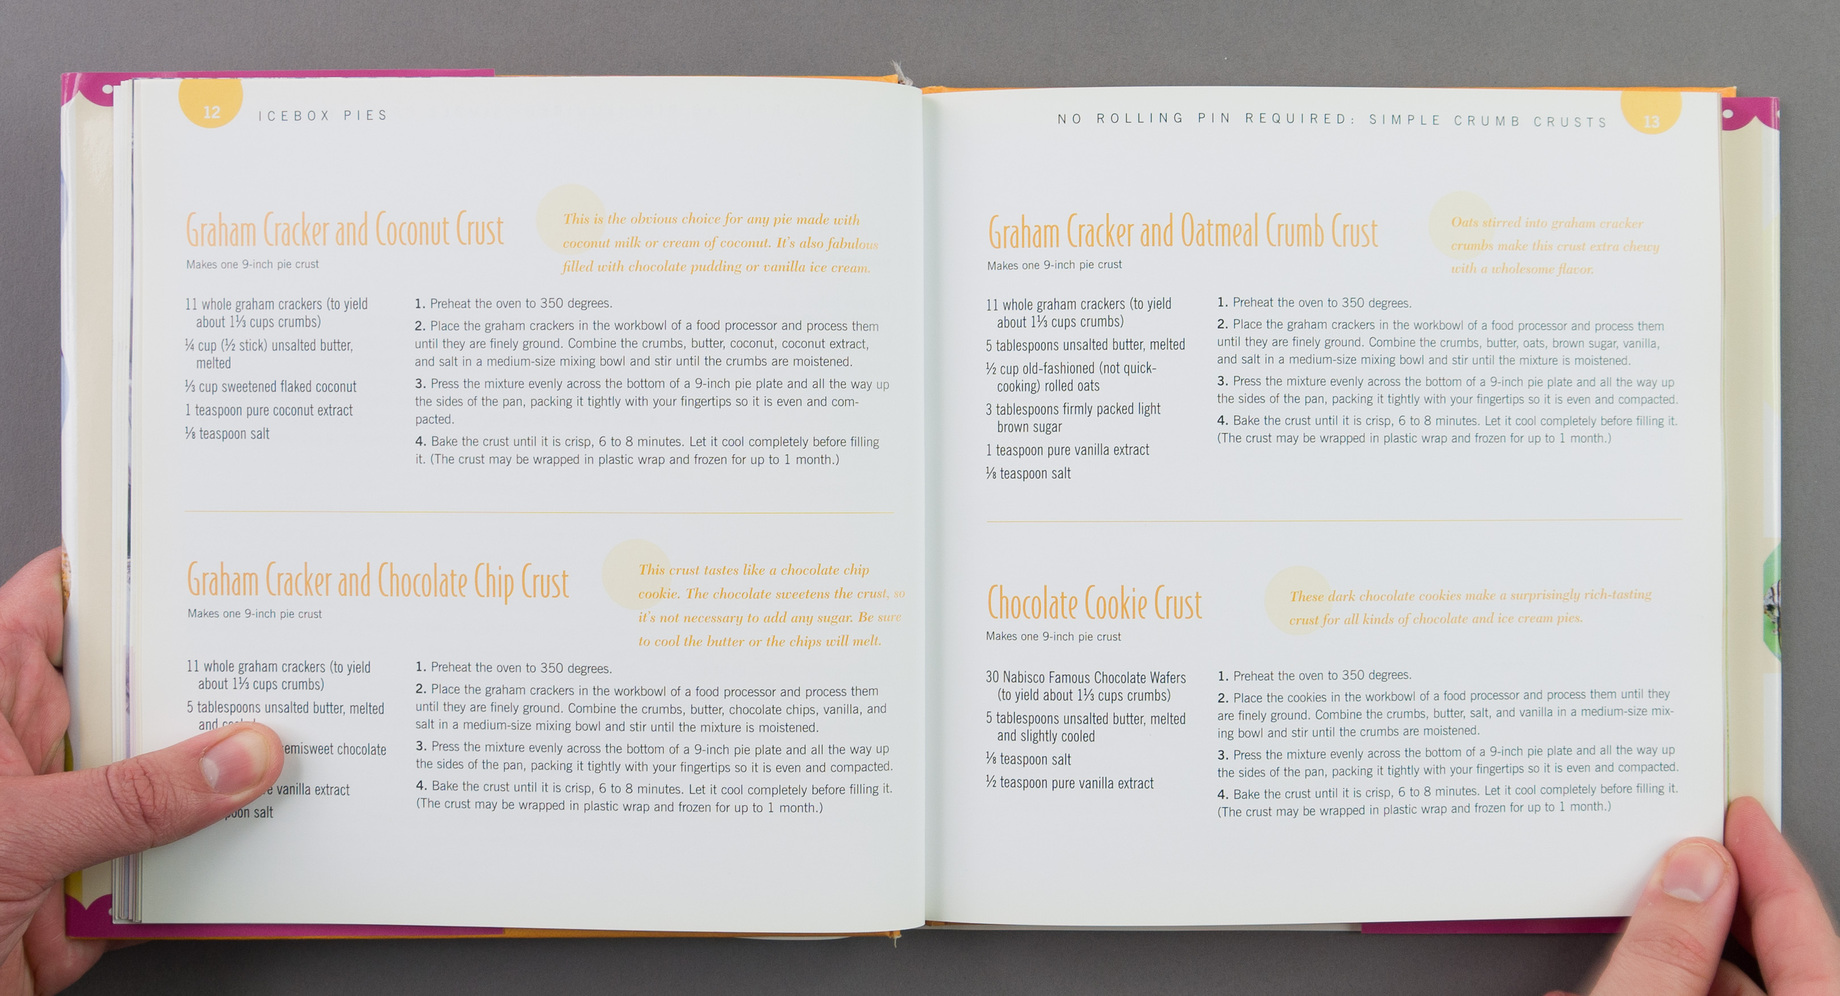 12
ICEBOX PIES
Graham Cracker and Coconut Crust
Makes one 9-inch pie crust
This is the obvious choice for any pie made with
coconut milk or cream of coconut. It's also fabulous
filled with chocolate pudding or vanilla ice cream.
11 whole graham crackers (to yield
about 1⅓ cups crumbs)
¼ cup (½ stick) unsalted butter,
melted
⅓ cup sweetened flaked coconut
1 teaspoon pure coconut extract
⅛ teaspoon salt
1. Preheat the oven to 350 degrees.
2. Place the graham crackers in the workbowl of a food processor and process them
until they are finely ground. Combine the crumbs, butter, coconut, coconut extract,
and salt in a medium-size mixing bowl and stir until the crumbs are moistened.
3. Press the mixture evenly across the bottom of a 9-inch pie plate and all the way up
the sides of the pan, packing it tightly with your fingertips so it is even and com-
pacted.
4. Bake the crust until it is crisp, 6 to 8 minutes. Let it cool completely before filling
it. (The crust may be wrapped in plastic wrap and frozen for up to 1 month.)
Graham Cracker and Chocolate Chip Crust
Makes one 9-inch pie crust
This crust tastes like a chocolate chip
cookie. The chocolate sweetens the crust, so
it's not necessary to add any sugar. Be sure
to cool the butter or the chips will melt.
11 whole graham crackers (to yield
about 1⅓ cups crumbs)
5 tablespoons unsalted butter, melted
and
semisweet chocolate
vanilla extract
salt
1. Preheat the oven to 350 degrees.
2. Place the graham crackers in the workbowl of a food processor and process them
until they are finely ground. Combine the crumbs, butter, chocolate chips, vanilla, and
salt in a medium-size mixing bowl and stir until the mixture is moistened.
3. Press the mixture evenly across the bottom of a 9-inch pie plate and all the way up
the sides of the pan, packing it tightly with your fingertips so it is even and compacted.
4. Bake the crust until it is crisp, 6 to 8 minutes. Let it cool completely before filling it.
(The crust may be wrapped in plastic wrap and frozen for up to 1 month.)
NO ROLLING PIN REQUIRED: SIMPLE CRUMB CRUSTS
13
Graham Cracker and Oatmeal Crumb Crust
Makes one 9-inch pie crust
Oats stirred into graham cracker
crumbs make this crust extra chewy
with a wholesome flavor.
11 whole graham crackers (to yield
about 1⅓ cups crumbs)
5 tablespoons unsalted butter, melted
½ cup old-fashioned (not quick-
cooking) rolled oats
3 tablespoons firmly packed light
brown sugar
1 teaspoon pure vanilla extract
⅛ teaspoon salt
1. Preheat the oven to 350 degrees.
2. Place the graham crackers in the workbowl of a food processor and process them
until they are finely ground. Combine the crumbs, butter, oats, brown sugar, vanilla,
and salt in a medium-size mixing bowl and stir until the mixture is moistened.
3. Press the mixture evenly across the bottom of a 9-inch pie plate and all the way up
the sides of the pan, packing it tightly with your fingertips so it is even and compacted.
4. Bake the crust until it is crisp, 6 to 8 minutes. Let it cool completely before filling it.
(The crust may be wrapped in plastic wrap and frozen for up to 1 month.)
Chocolate Cookie Crust
Makes one 9-inch pie crust
These dark chocolate cookies make a surprisingly rich-tasting
crust for all kinds of chocolate and ice cream pies.
30 Nabisco Famous Chocolate Wafers
(to yield about 1⅓ cups crumbs)
5 tablespoons unsalted butter, melted
and slightly cooled
⅛ teaspoon salt
½ teaspoon pure vanilla extract
1. Preheat the oven to 350 degrees.
2. Place the cookies in the workbowl of a food processor and process them until they
are finely ground. Combine the crumbs, butter, salt, and vanilla in a medium-size mix-
ing bowl and stir until the crumbs are moistened.
3. Press the mixture evenly across the bottom of a 9-inch pie plate and all the way up
the sides of the pan, packing it tightly with your fingertips so it is even and compacted.
4. Bake the crust until it is crisp, 6 to 8 minutes. Let it cool completely before filling it.
(The crust may be wrapped in plastic wrap and frozen for up to 1 month.)